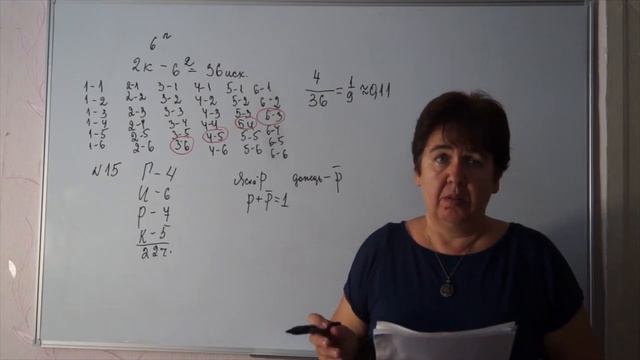 6ⁿ
2к – 6² = 36 исх.
1-1 2-1 3-1 4-1 5-1 6-1
1-2 2-2 3-2 4-2 5-2 6-2
1-3 2-3 3-3 4-3 5-3 6-3
1-4 2-4 3-4 4-4 5-4 6-4
1-5 2-5 3-5 4-5 5-5 6-5
1-6 2-6 3-6 4-6 5-6 6-6
4/36 = 1/9 ≈ 0,11
N15 П-4
И-6
Р-7
К-5
22ч.
Ясно-р дождь-p̄
p + p̄ = 1